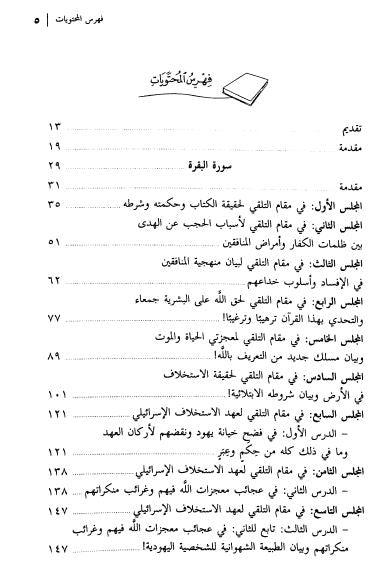 فهرس المحتويات | ٥
فِهْرِسُ المُحْتَوَيَاتِ
تقديم ١٣
مقدمة ١٩
سورة البقرة ٢٩
مقدمة ٣١
المجلس الأول: في مقام التلقي لحقيقة الكتاب وحكمته وشرطه ٣٥
المجلس الثاني: في مقام التلقي لأسباب الحجب عن الهدى
بين ظلمات الكفار وأمراض المنافقين ٥١
المجلس الثالث: في مقام التلقي لبيان منهجية المنافقين
في الإفساد وأسلوب خداعهم ٦٢
المجلس الرابع: في مقام التلقي لحق اللَّه على البشرية جمعاء
والتحدي بهذا القرآن ترهيبًا وترغيبًا! ٧٧
المجلس الخامس: في مقام التلقي لمعجزتي الحياة والموت
وبيان مسلك جديد من التعريف باللَّه! ٨٩
المجلس السادس: في مقام التلقي لحقيقة الاستخلاف
في الأرض وبيان شروطه الابتلائية! ١٠١
المجلس السابع: في مقام التلقي لعهد الاستخلاف الإسرائيلي ١٢١
– الدرس الأول: في فضح خيانة يهود ونقضهم لأركان العهد
وما في ذلك كله من حِكَمٍ وعِبَرٍ ١٢١
المجلس الثامن: في مقام التلقي لعهد الاستخلاف الإسرائيلي ١٣٨
– الدرس الثاني: في عجائب معجزات اللَّه فيهم وغرائب منكراتهم ١٣٨
المجلس التاسع: في مقام التلقي لعهد الاستخلاف الإسرائيلي ١٤٧
– الدرس الثالث: تابع للثاني: في عجائب معجزات اللَّه فيهم وغرائب
منكراتهم وبيان الطبيعة الشهوانية للشخصية اليهودية! ١٤٧